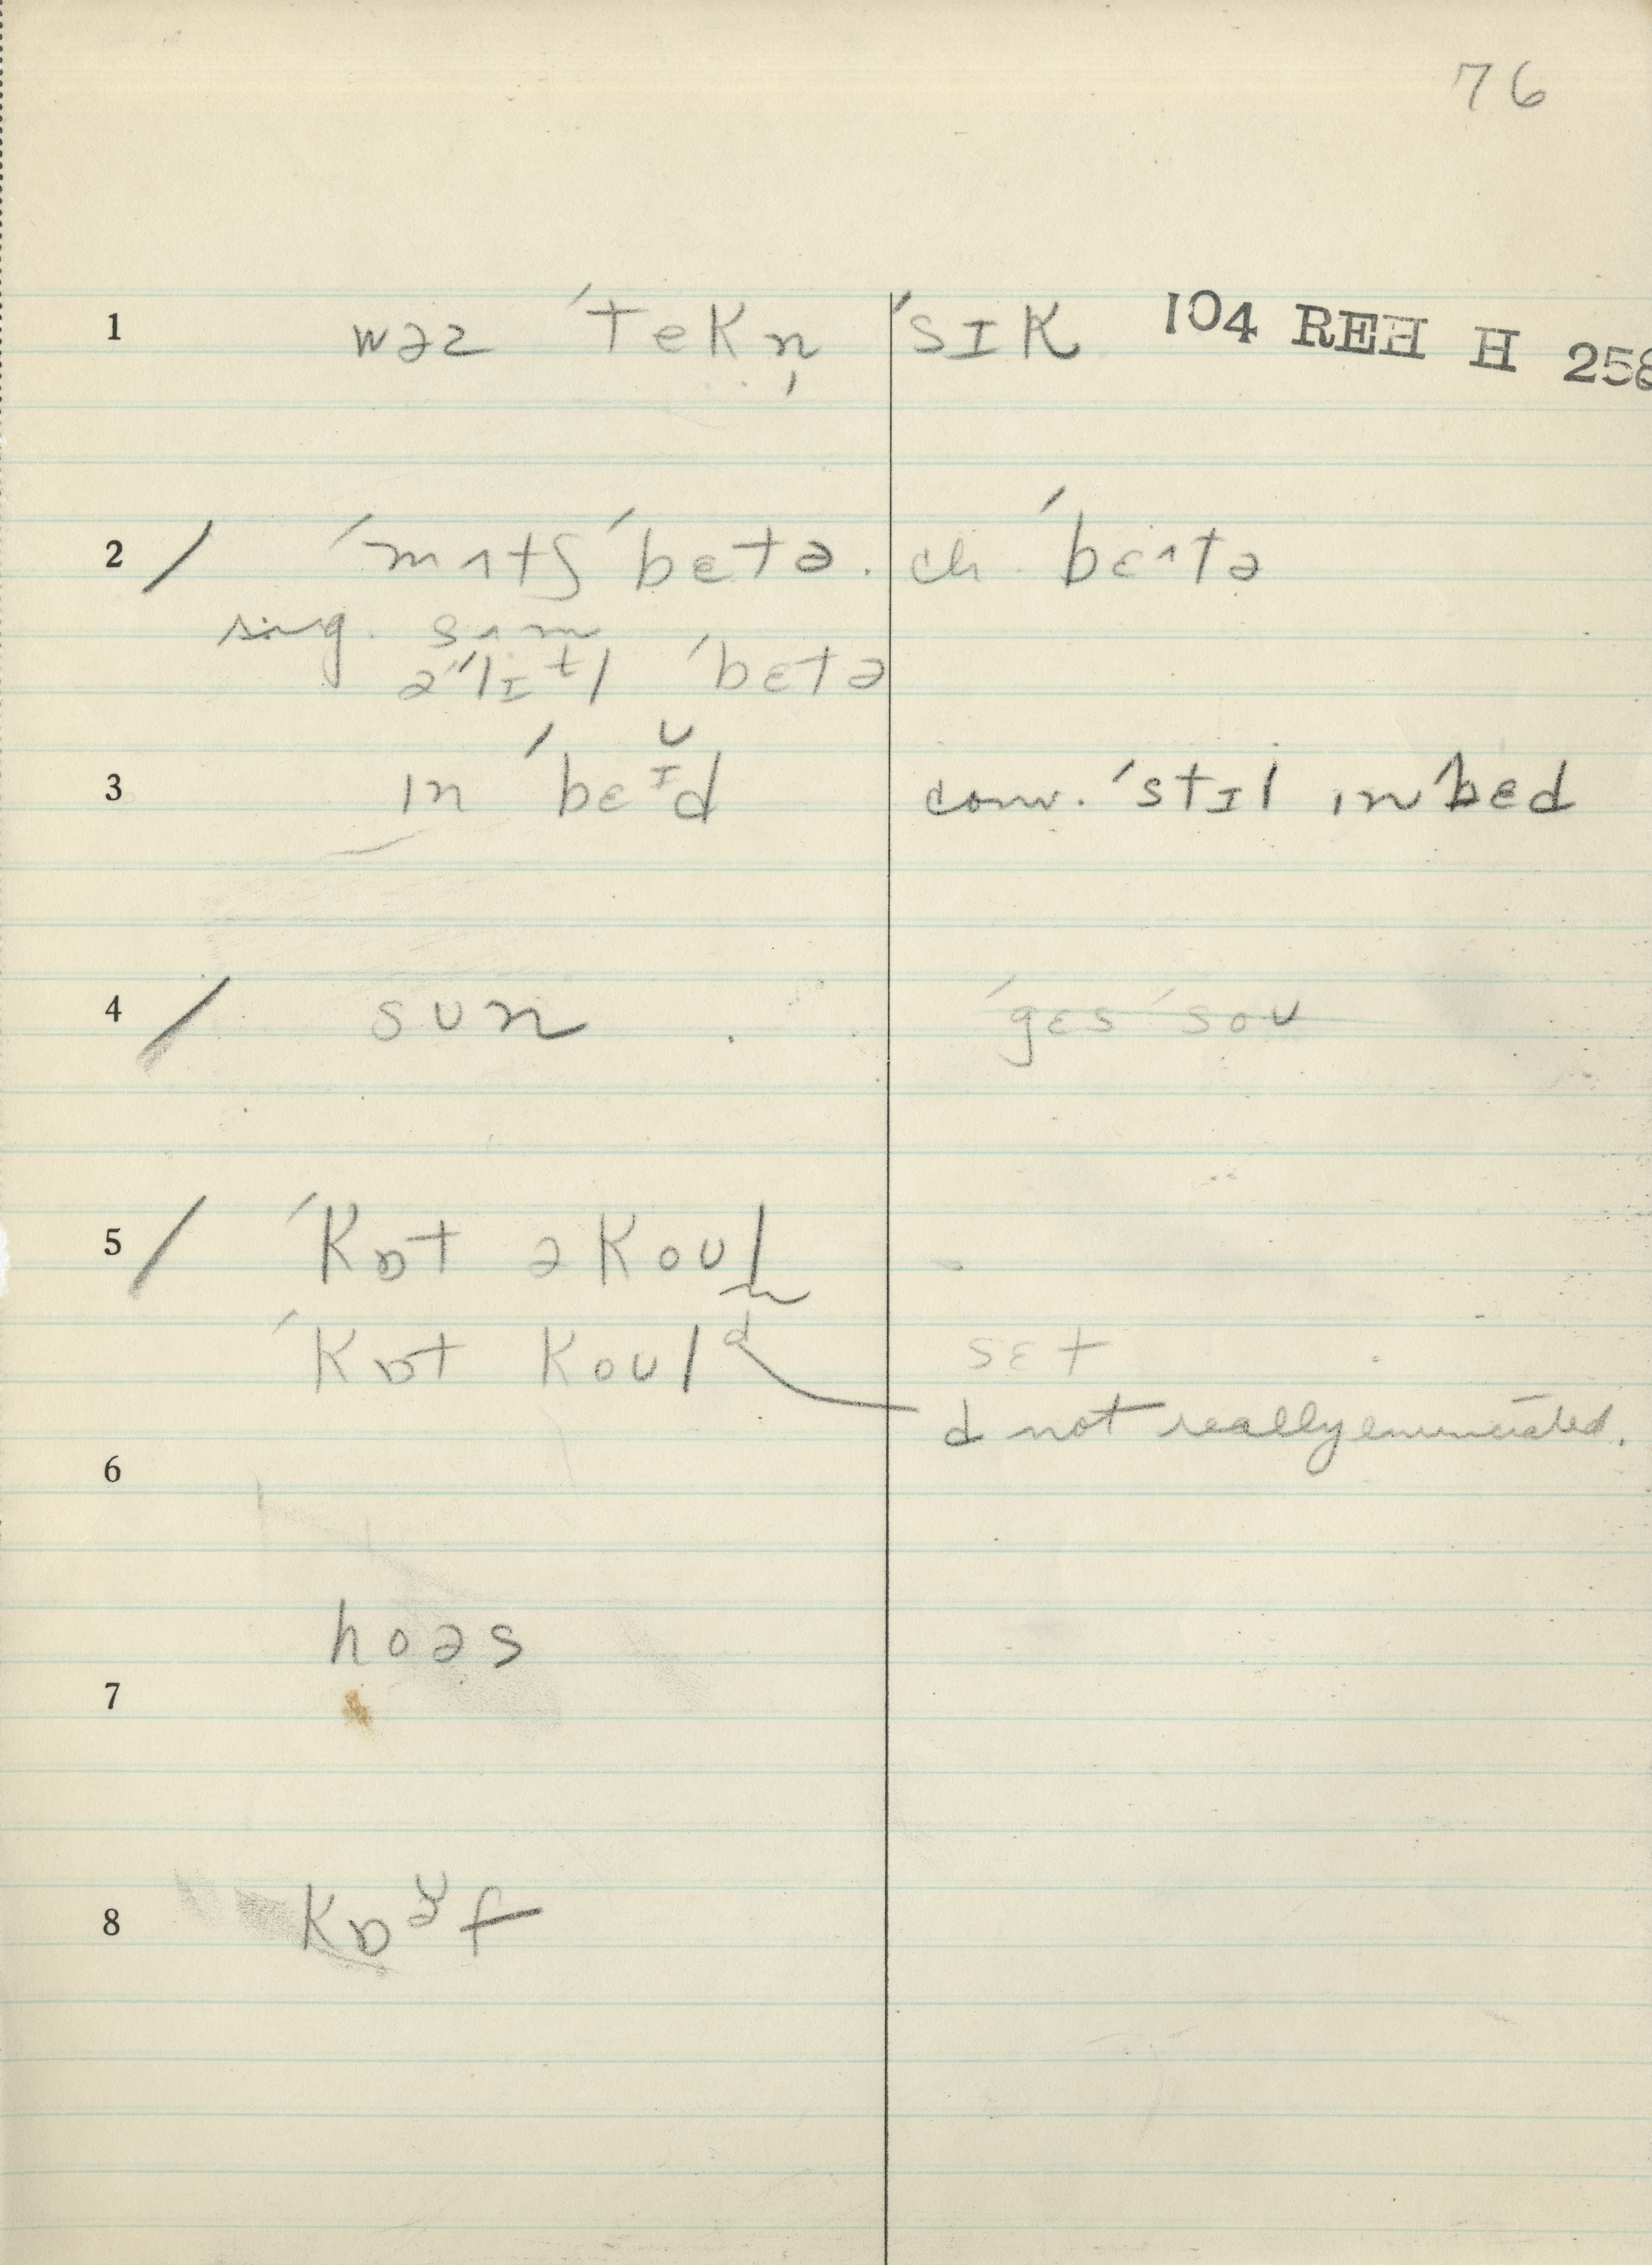 76
1 wəz ˈtekn̩ ˈsɪk 104 REH H 258
2 / ˈmʌtʃ ˈbetə. ch. ˈbɛ^tə
sug. sʌm
əˈˈlɪtl ˈbɛtə
3 ɪn ˈbɛɪ̆d conv. ˈstɪl ɪn ˈbɛd
4 / sun ˈgɛs ˈsoʊ
5 / ˈkɒt ə koul
ˈkɒt koulᵈ sɛt
d not really enunciated.
6
hoəs
7
8 kɒə̆f